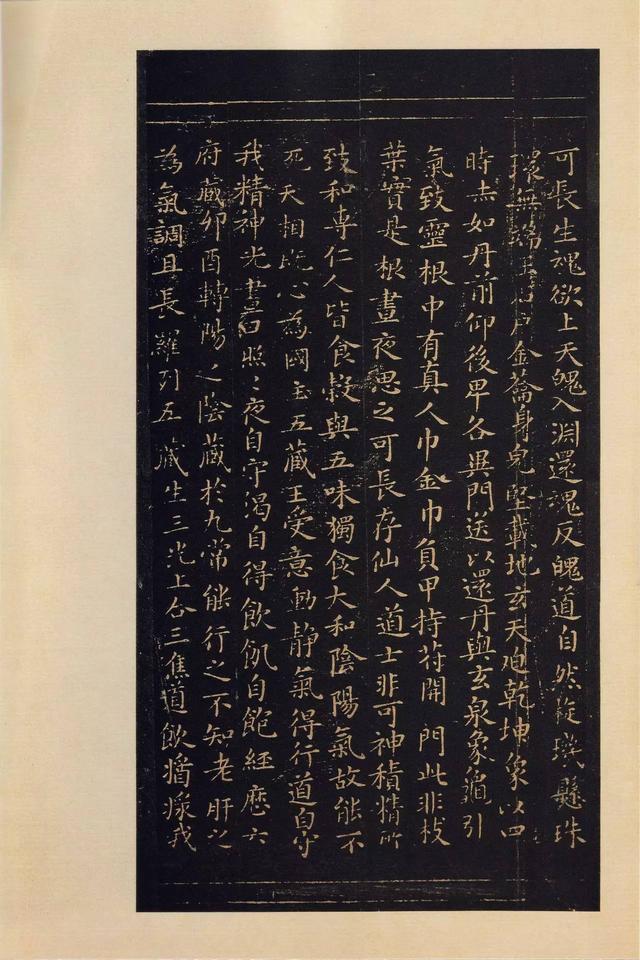 可長生魂欲上天魄入淵還魂反魄道自然旋璣懸珠
環無端玉石戶金籥身皃堅載地玄天迫乾坤象以四
時赤如丹前仰後卑各異門送以還丹與玄泉象龜引
氣致靈根中有真人巾金巾負甲持苻開門此非枝
葉實是根晝夜思之可長存仙人道士非可神積精所
致和專仁人皆食穀與五味獨食大和陰陽氣故能不
死天相既心為國主五藏王受意動靜氣得行道自守
我精神光晝日照〻夜自守渴自得飲飢自飽經歷六
府藏卯酉轉陽之陰藏於九常能行之不知老肝之
為氣調且長羅列五藏生三光上合三焦道飲醬漿我